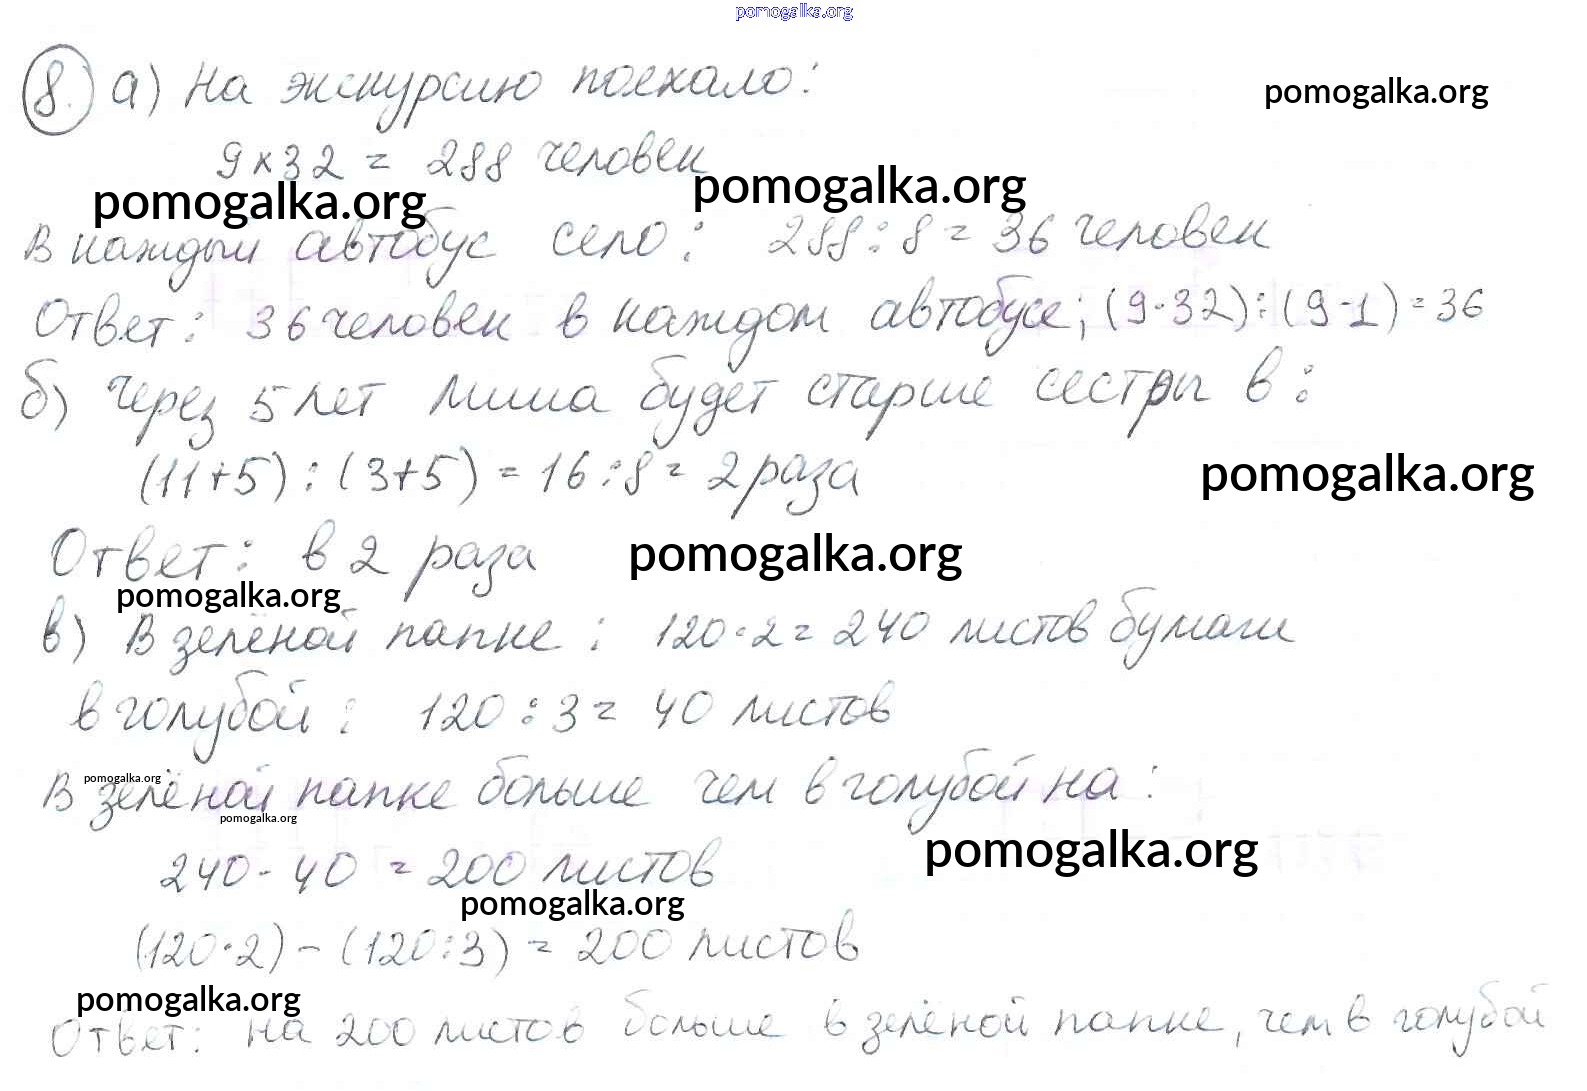 pomogalka.org
8. а) На экскурсию поехало:
pomogalka.org
9×32 = 288 человек
pomogalka.org
pomogalka.org
В каждый автобус село: 288:8 = 36 человек
Ответ: 36 человек в каждом автобусе; (9·32):(9-1)=36
б) Через 5 лет Миша будет старше сестры в:
(11+5):(3+5) = 16:8 = 2 раза
pomogalka.org
Ответ: в 2 раза
pomogalka.org
pomogalka.org
в) В зелёной папке: 120·2 = 240 листов бумаги
в голубой: 120:3 = 40 листов
pomogalka.org
В зелёной папке больше чем в голубой на:
pomogalka.org
pomogalka.org
240 - 40 = 200 листов
pomogalka.org
(120·2) - (120:3) = 200 листов
pomogalka.org
Ответ: на 200 листов больше в зелёной папке, чем в голубой